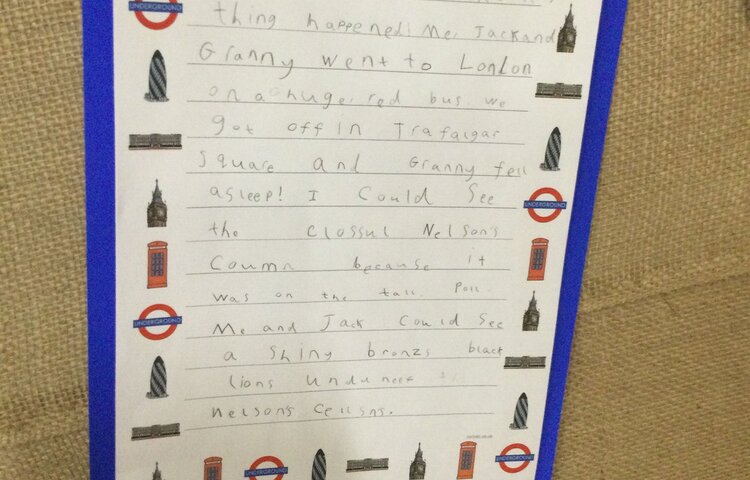 thing happened! Me, Jack and
Granny went to London
on a huger red bus. we
got off in Trafalgar
Square and Granny fell
asleep! I Could See
the Clossul Nelson's
Coumn because it
was on the tall Poll.
Me and Jack Could See
a Shiny bronzs black
lions unduneef
nelsons Cellsns.
UNDERGROUND
UNDERGROUND
UNDERGROUND
UNDERGROUND
UNDERGROUND